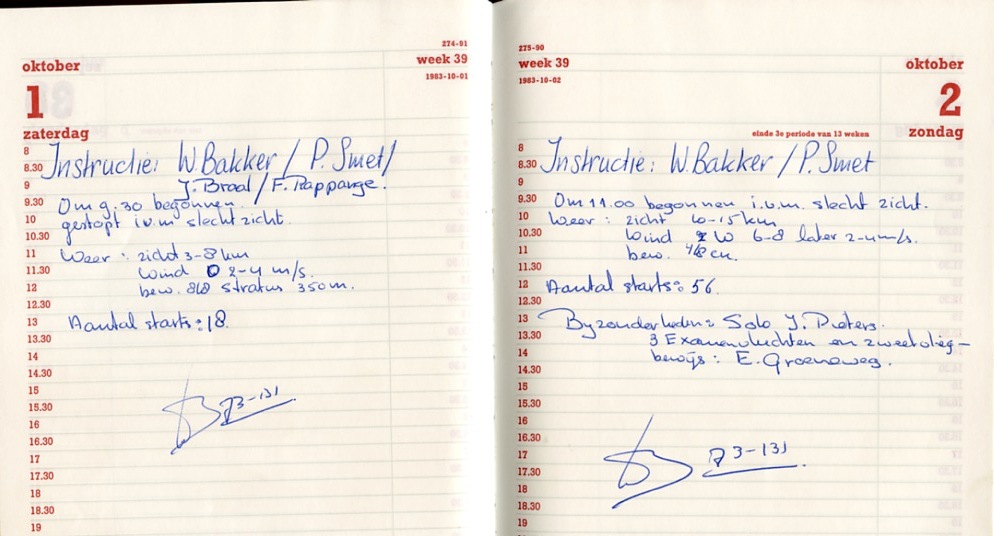 274-91
oktober
week 39
1983-10-01
1
zaterdag
8
8.30
Instructie: W Bakker / P. Smet /
9
J. Braal / F. Rappange.
9.30
Om 9.30 begonnen.
10
gestopt i.v.m slecht zicht.
10.30
11
Weer: zicht 3-8 km
11.30
Wind O 2-4 m/s.
12
bew. 8/8 stratus 350 m.
12.30
13
Aantal starts: 18.
13.30
14
14.30
15
15.30
73-131
16
16.30
17
17.30
18
18.30
19
275-90
week 39
oktober
1983-10-02
2
einde 3e periode van 13 weken
zondag
8
8.30
Instructie: W. Bakker / P. Smet
9
9.30
Om 11.00 begonnen i.v.m. slecht zicht.
10
Weer: zicht 10-15 km
10.30
Wind W 6-8 later 2-4 m/s.
11
bew. 4/8 cu.
11.30
12
Aantal starts: 56.
12.30
13
Byzonderheden: Solo J. Pieters.
13.30
3 Examenvluchten en zweefvlieg-
14
bewijs: E. Groeneweg.
14.30
15
15.30
16
16.30
17
73-131
17.30
18
18.30
19